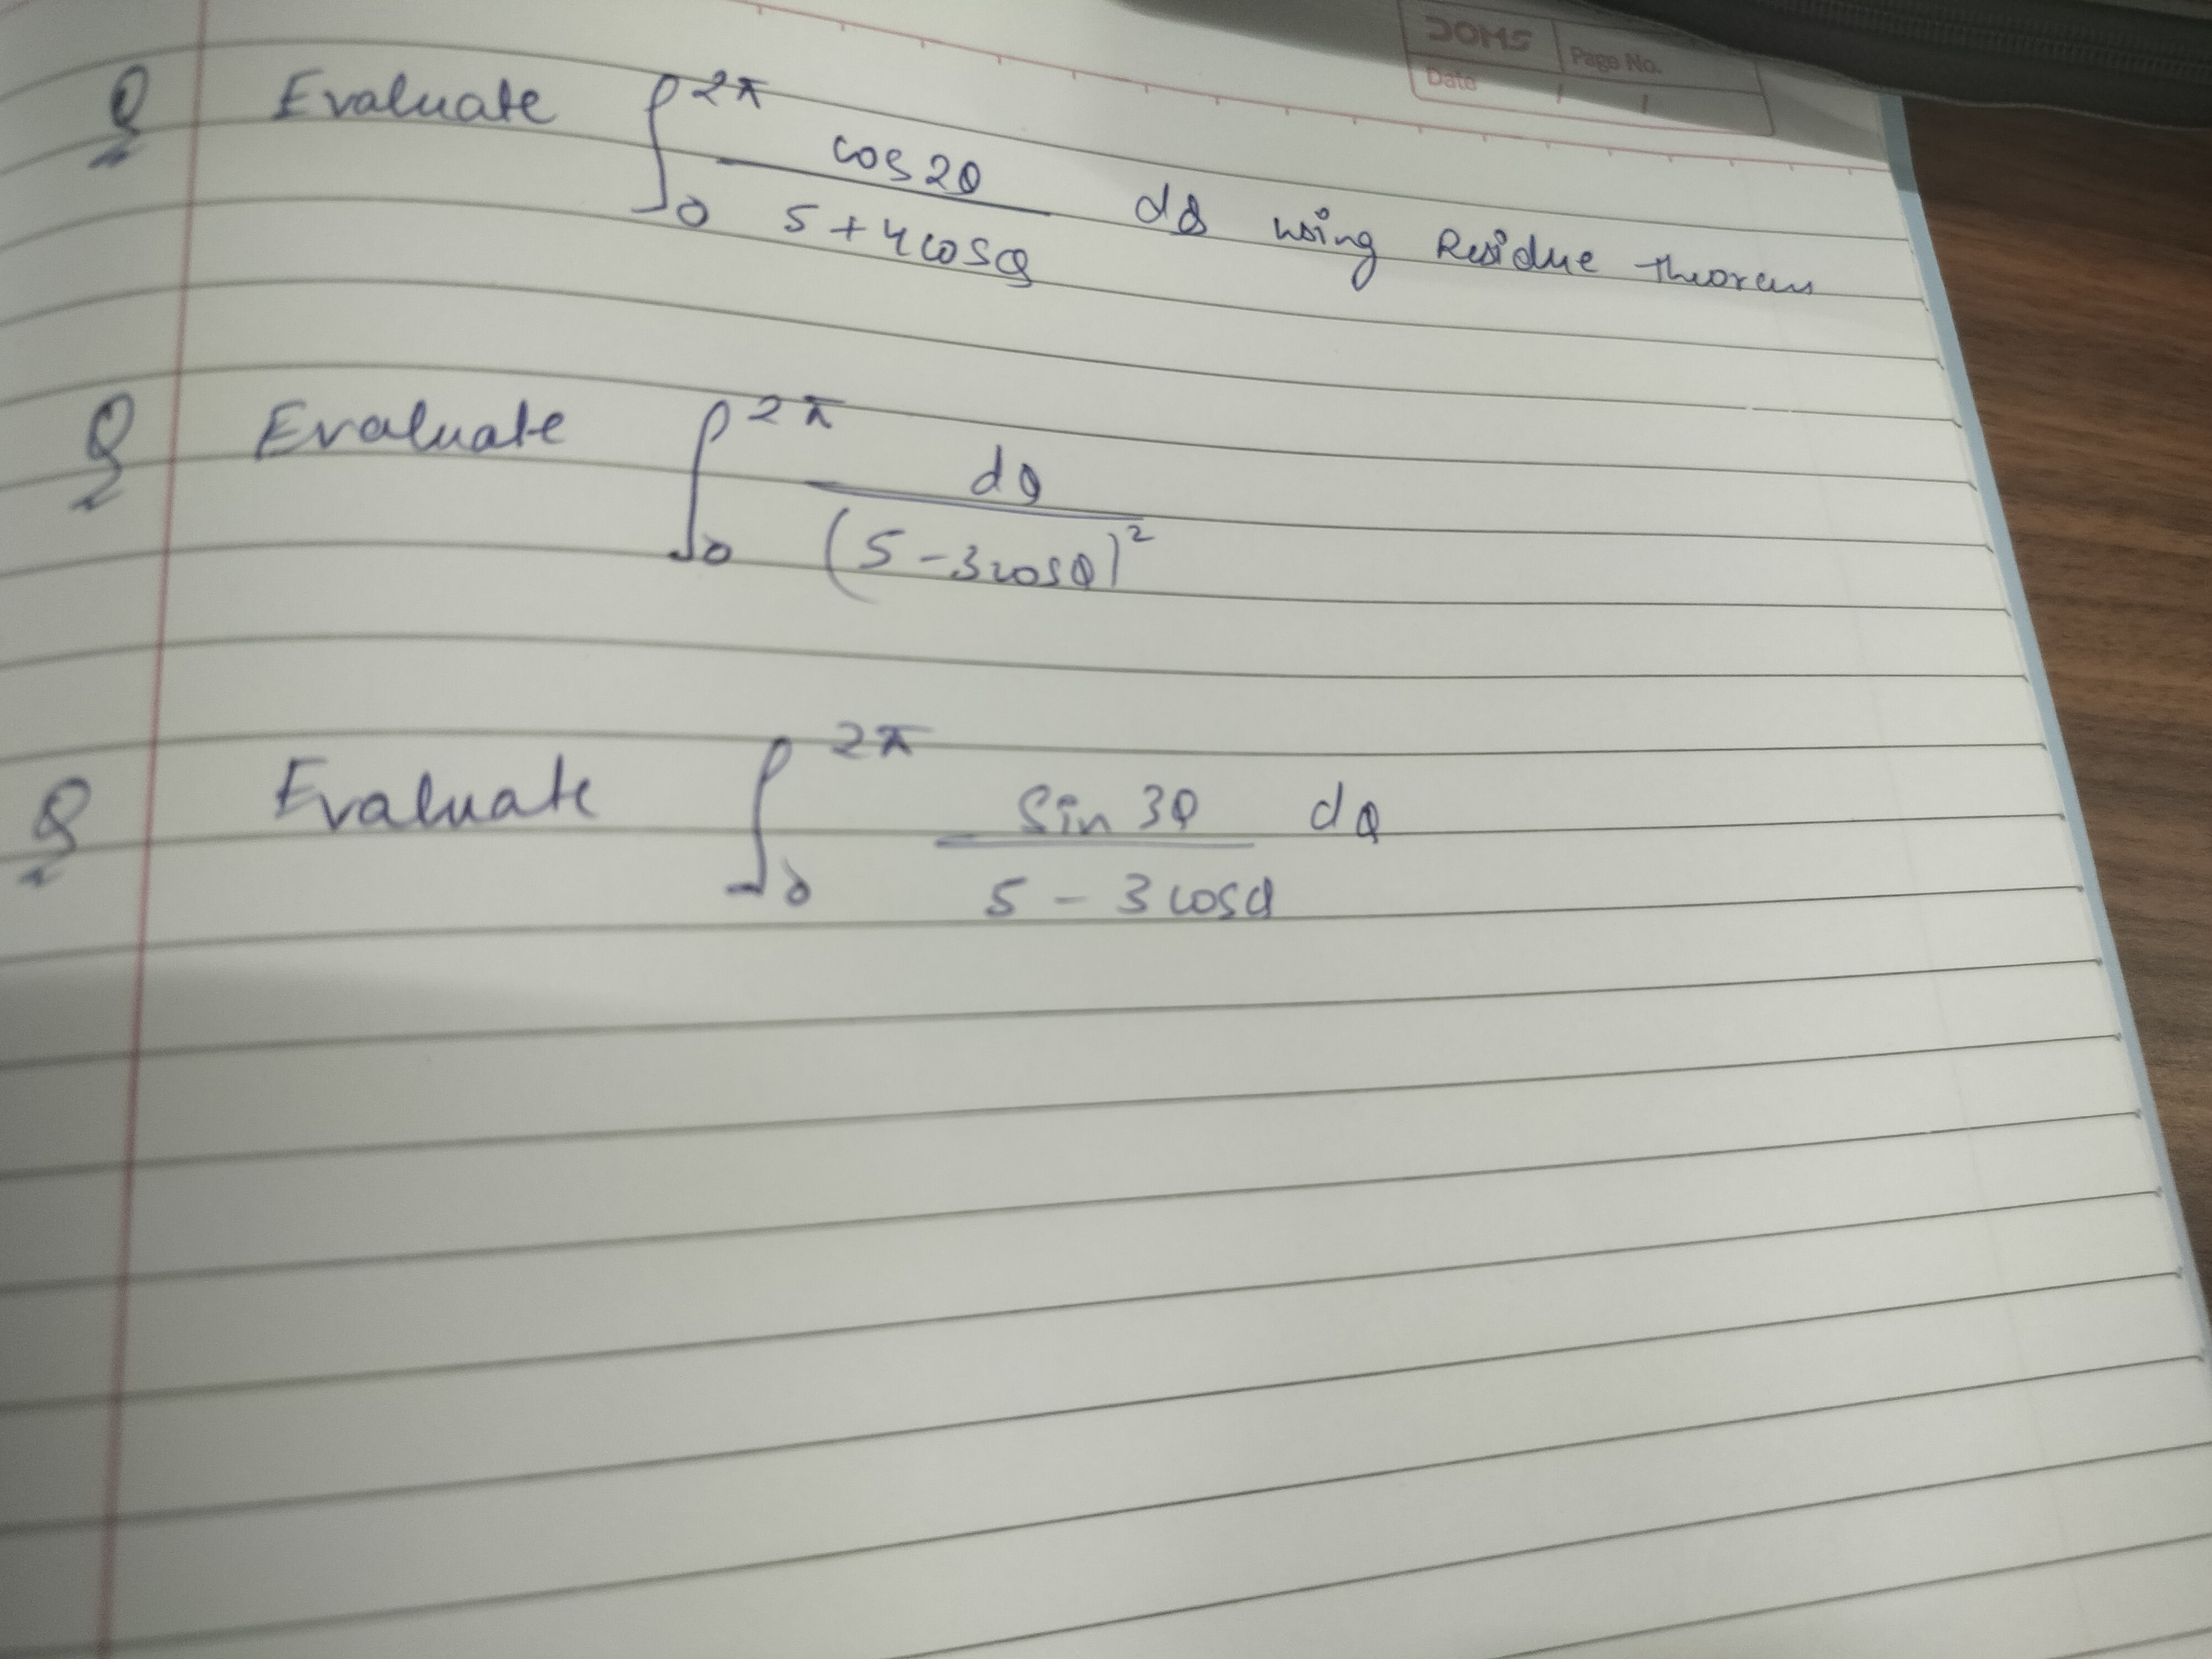 DOMS Page No.
Date / /
Q Evaluate ∫₀^2π cos2θ / 5+4cosθ dθ using Residue theorem
Q Evaluate ∫₀^2π dθ / (5-3cosθ)²
Q Evaluate ∫₀^2π Sin 3θ / 5-3cosθ dθ